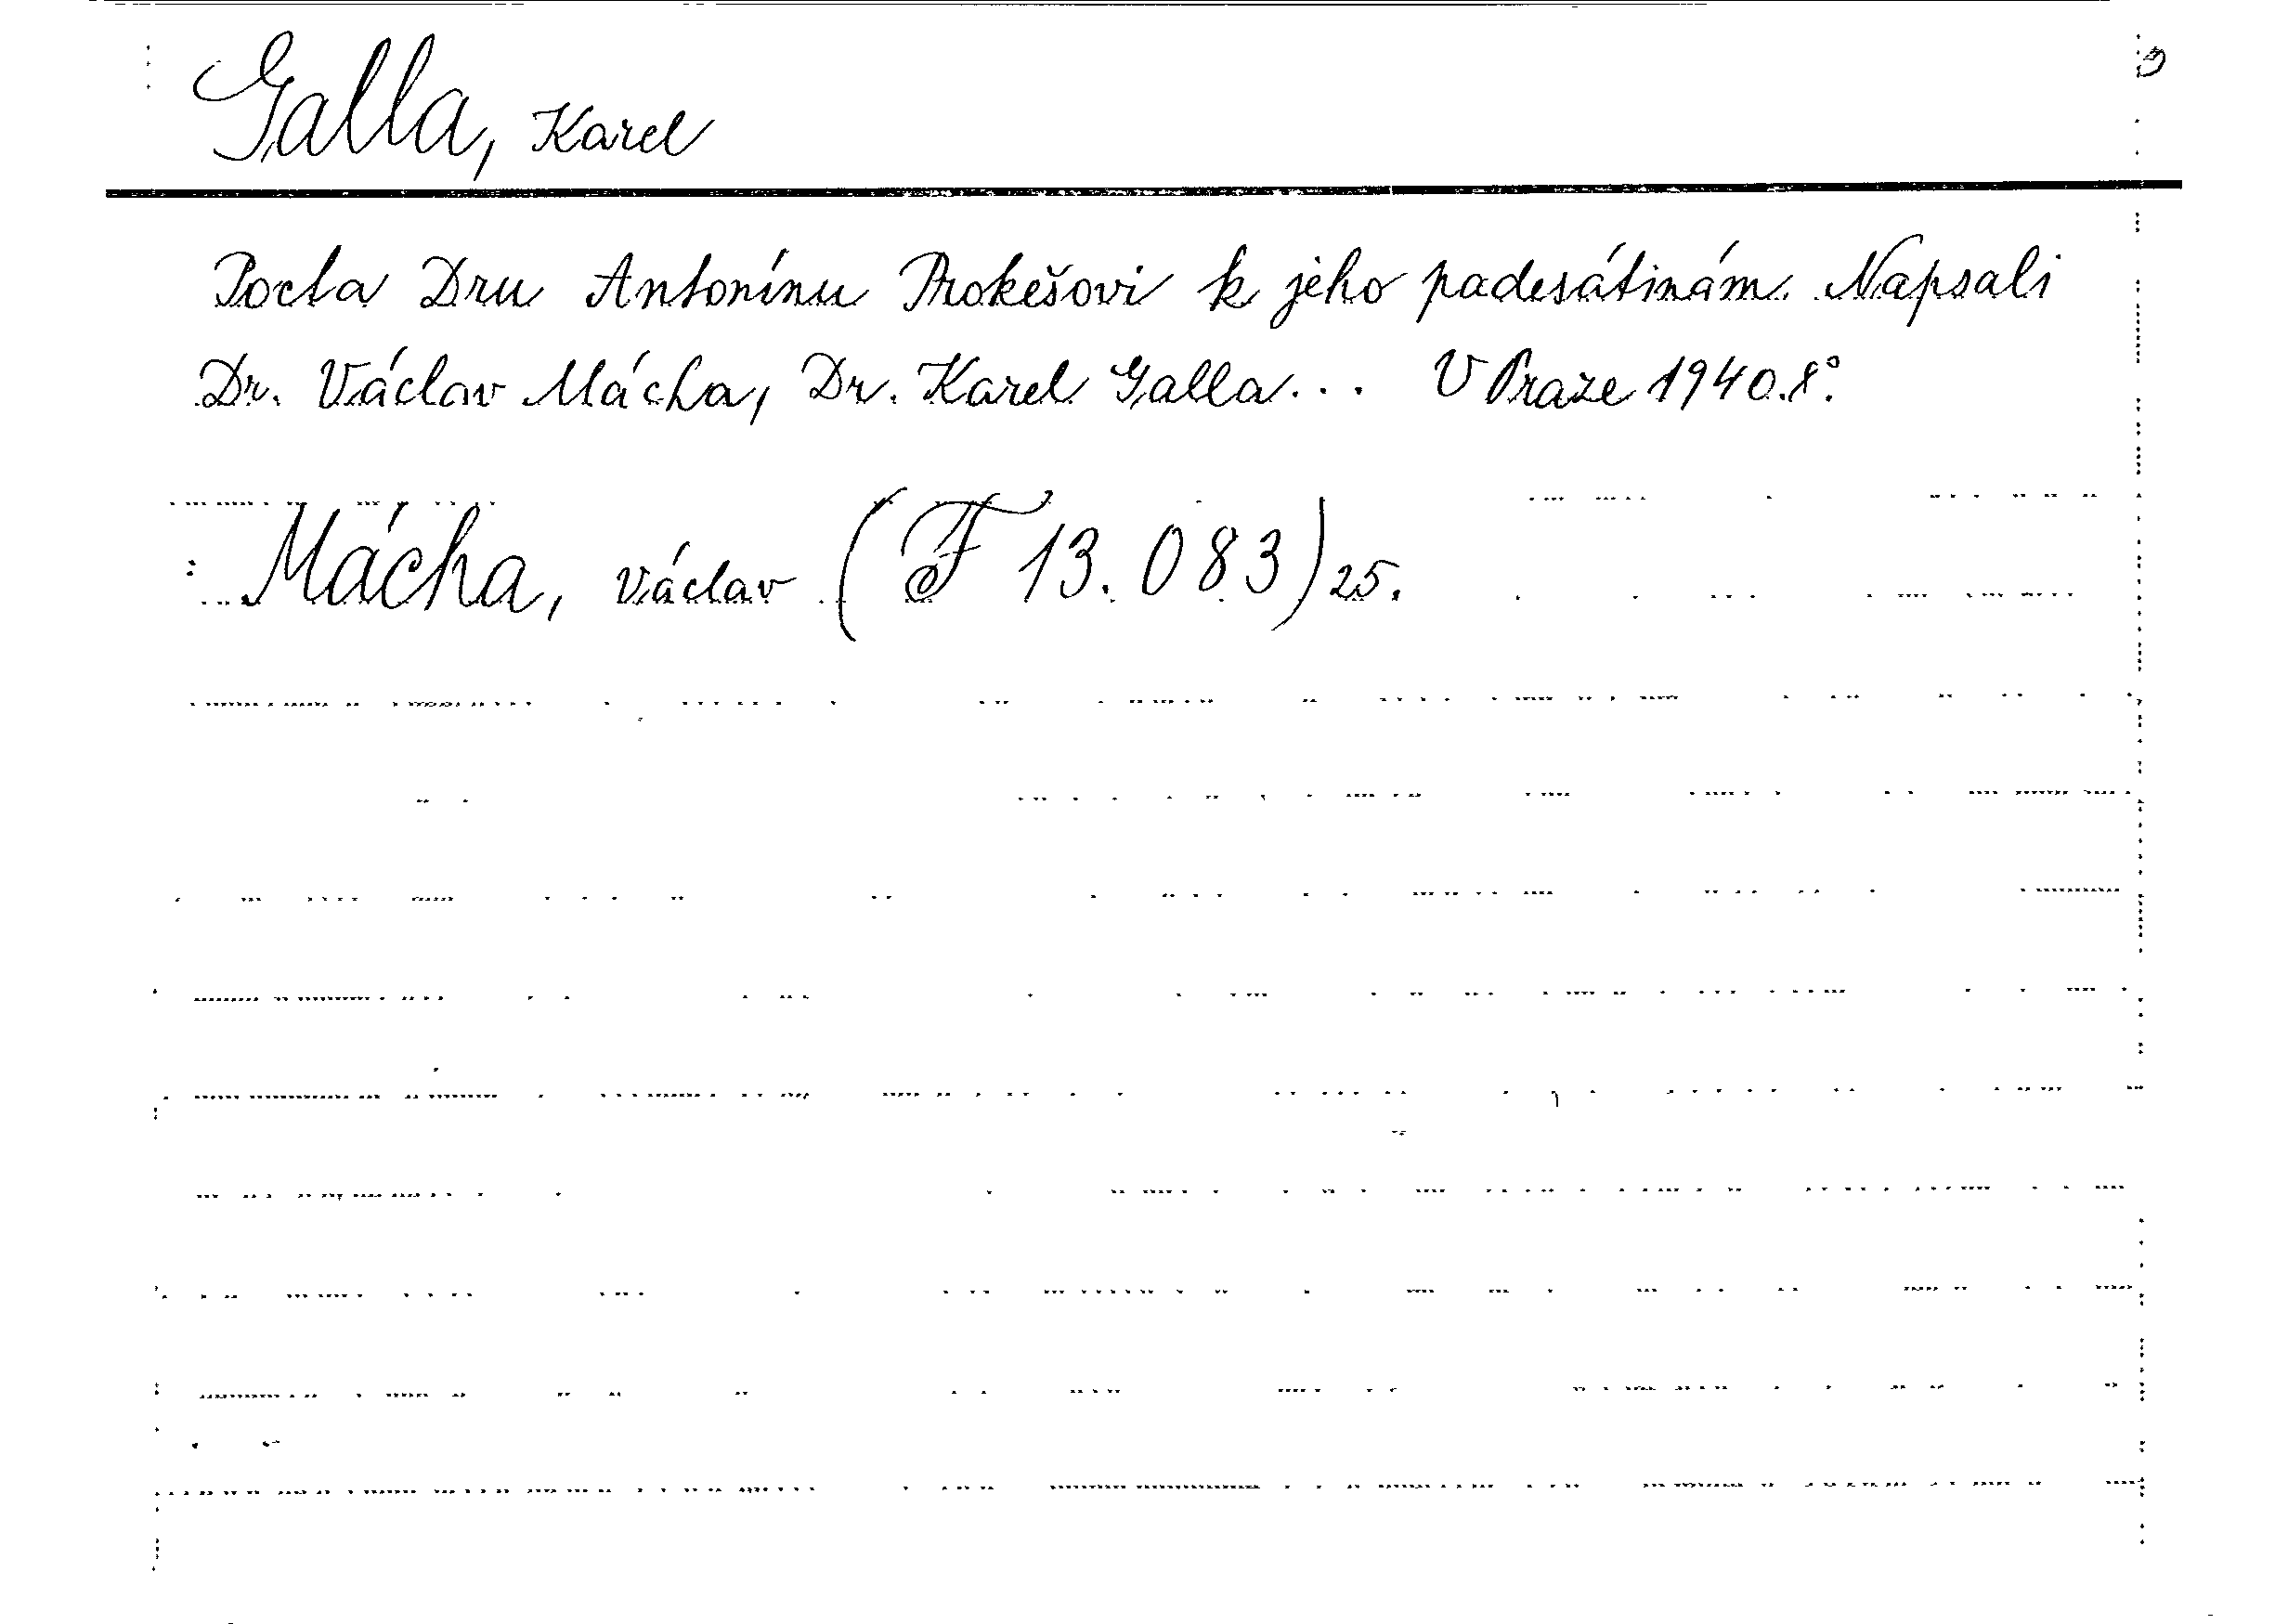 Galla, Karel
Pocta Dru Antonínu Prokešovi k jeho padesátinám. Napsali
Dr. Václav Mácha, Dr. Karel Galla... V Praze 1940. 8°.
Mácha, Václav (F 13.083) 25.